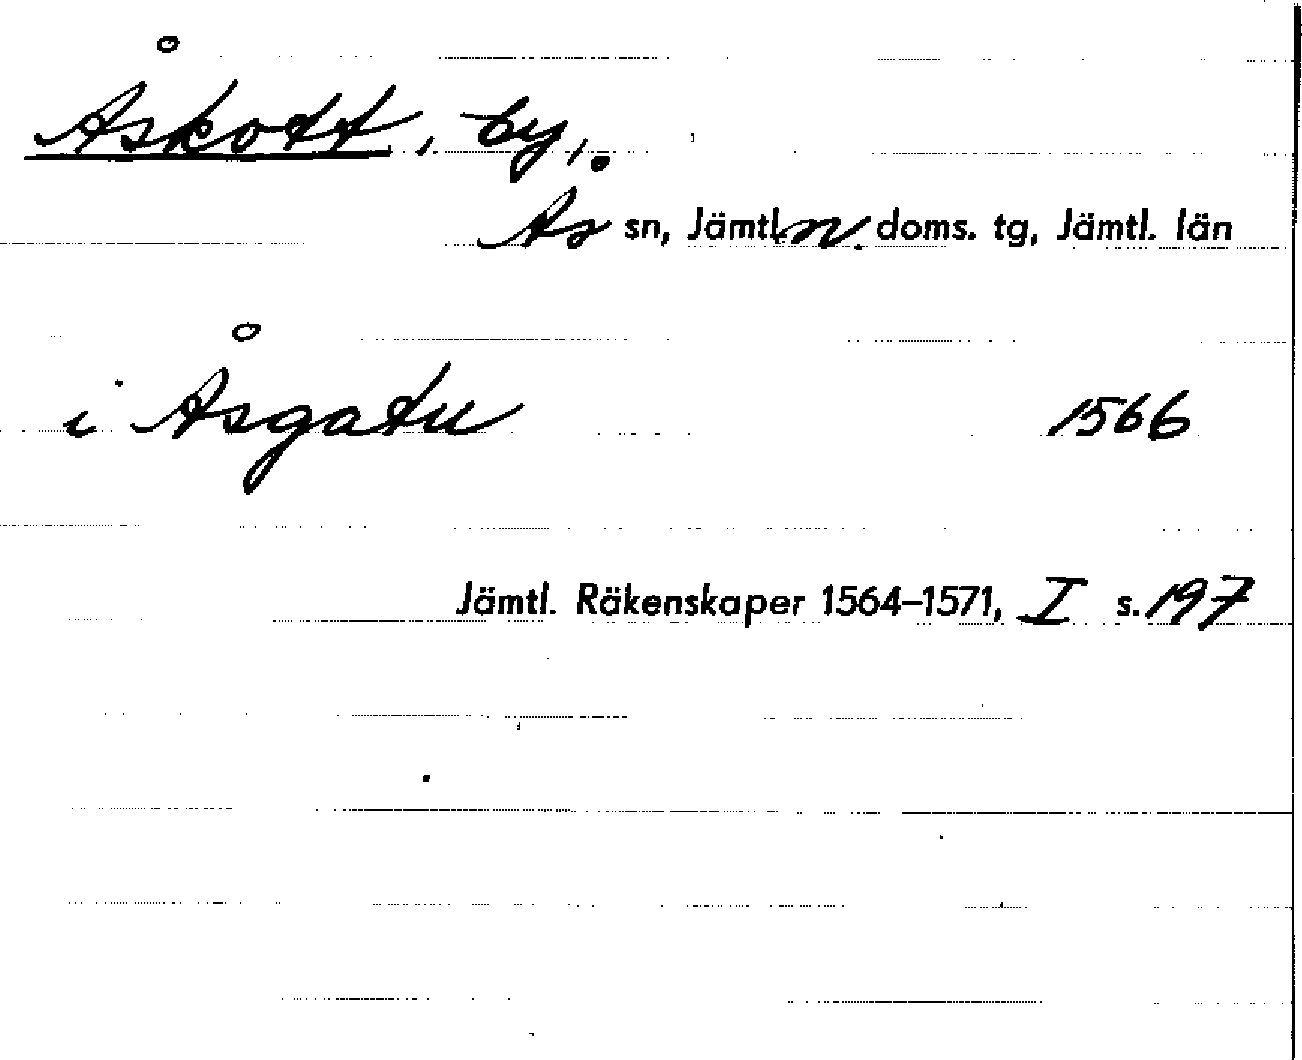 Åskott, by,
Ås sn, Jämtl. n. doms. tg, Jämtl. län
i Åsgatu 1566
Jämtl. Räkenskaper 1564–1571, I s. 197